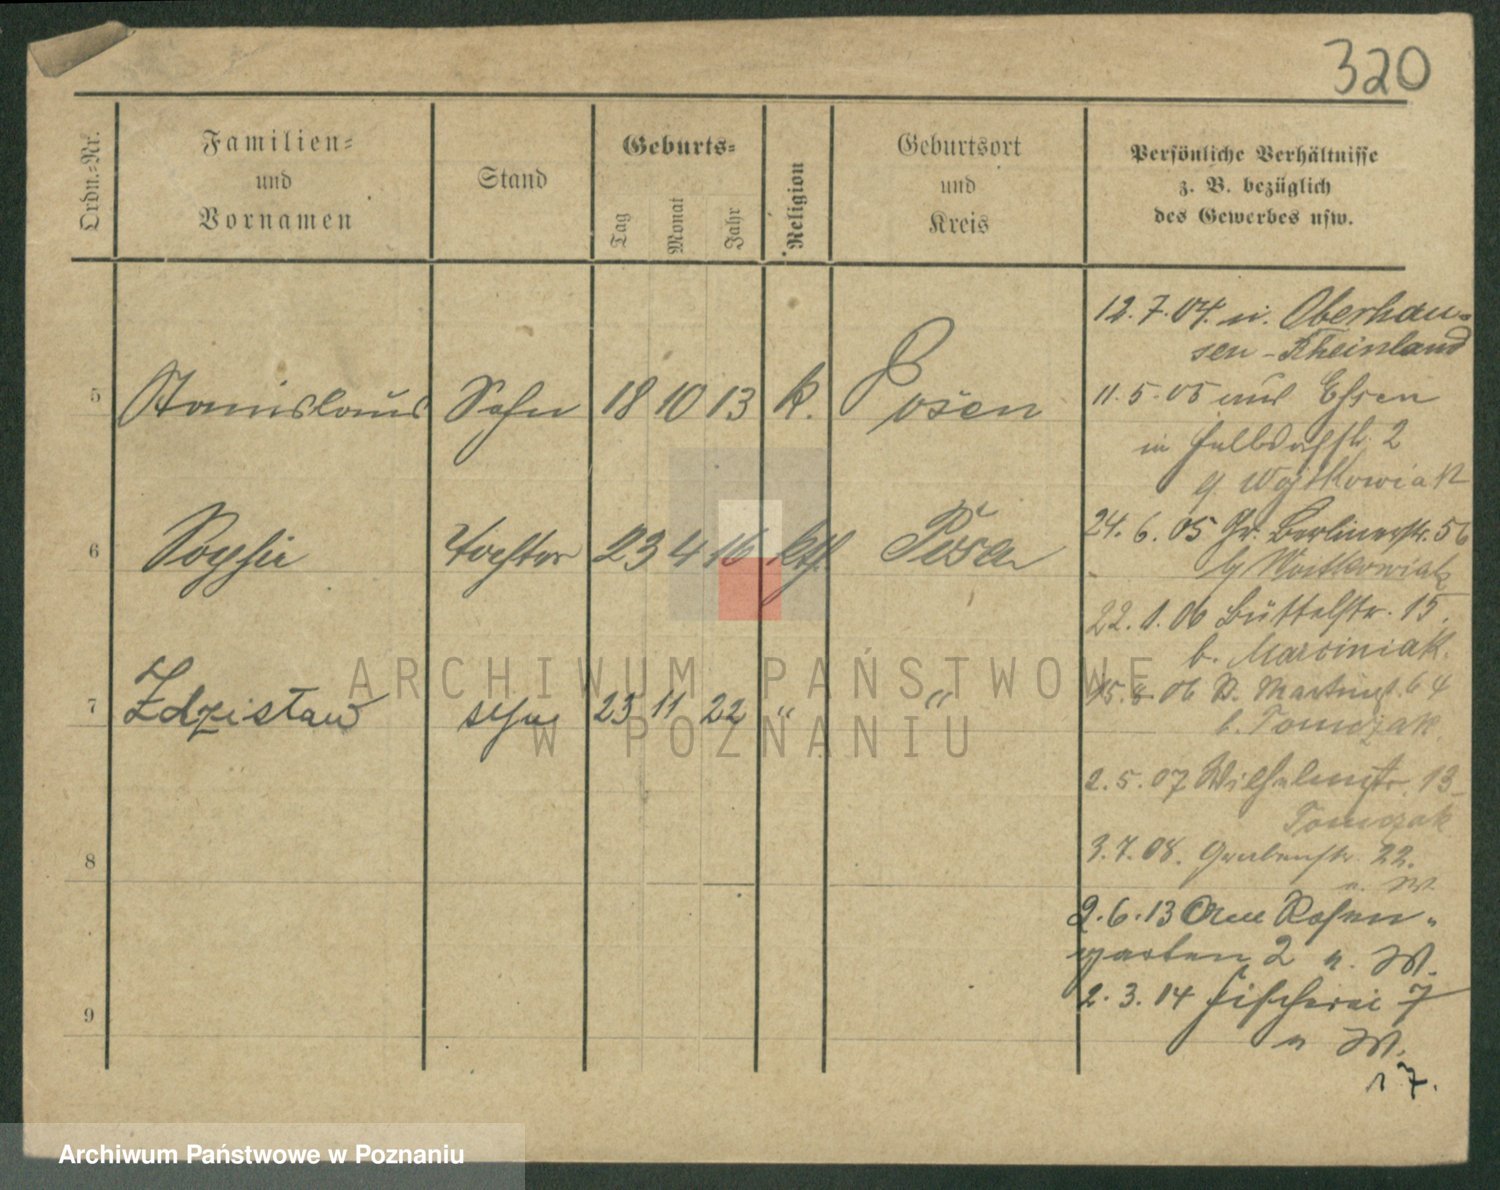 320
Ordn.-Nr.
Familien-
und
Vornamen
Stand
Geburts-
Tag
Monat
Jahr
Religion
Geburtsort
und
Kreis
Persönliche Verhältnisse
z. B. bezüglich
des Gewerbes usw.
5 Stanislaus Sohn 18 10 13 k. Posen
6 Sophie Tochter 23 4 16 kth. Posen
7 Zdzisław sohn 23 11 22 " "
8
9
12.7.04. n. Oberhau-
sen-Rheinland
11.5.05 aus Essen
in 2
Wojtkowiak
24.6.05 Gr. Berlinerstr. 56
b/ Woitkowiak
22.1.06 Büttelstr. 15.
b. Marciniak.
15.8.06 St. Martinst. 64
b. Tomczak.
2.5.07 Wilhelmstr. 13
Tomczak
3.7.08. Grabenstr. 22.
a. W
2.6.13 Am Rosen-
garten 2 a. W.
2.3.14 Fischerei 7
a W.
17.
ARCHIWUM PAŃSTWOWE
W POZNANIU
Archiwum Państwowe w Poznaniu